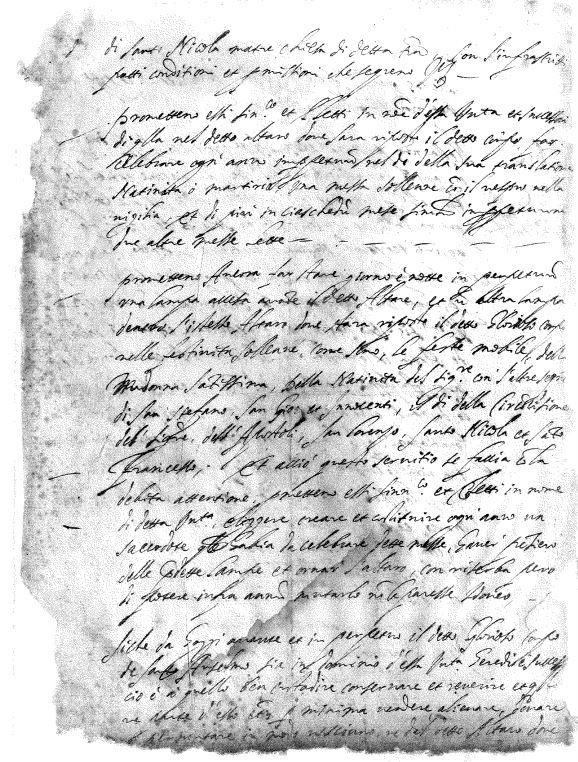 di Santo Nicola matre chiesa di detta Trã con l'infrascritti
patti conditioni et che segreno
promettono essi Sin.co et Eletti in nõe d'essa Unta et successori
di q̃lla nel detto altaro dove sara riposto il detto corpo far
celebrare ogni anno in perpetuum nel dì della sua translatione
Natività o martirio una messa sollenne cõ il vespro nella
vigilia, et di più in ciaschedũ mese in perpetuum
due altre messe lette
promettono Ancora far stare giorno è notte in perpetuum
una lampa allesa avante il detto Altare, et altra lampa
dentro l'istesso Altaro dove stara riposto il detto Glorioso corpo
nelle festività sollenne, come sono, le feste mobile, della
Madonna Santissima, della Natività del Sig.re con l'altre
di San Stefano San Gio: et Innocenti, il dì della Circoncisione
del Sig.re, dell'Apostoli, San Lorenzo, Santo Nicola et Sãto
Francesco. Et acciò questo servitio se faccia cõ la
debita attentione, promettono essi Sin.co et Eletti in nome
di detta Unta, eleggere creare et costituire ogni anno un
sacerdote che habia da celebrare dette messe, haver pensiero
delle dette lampe et ornar l'altaro, con riserba però
di potere infra annũ mutarlo nõ li paresse idoneo
Siche da hoggi avante et in perpetuo il detto Glorioso corpo
de Santo Anselmo sia in dominio d'essa Unta heredi è successori
ciò è à quello ben custodire conservare et reverire et
parte d'esso minima vendere alienare, donare
in nesciuno del detto Altaro dove